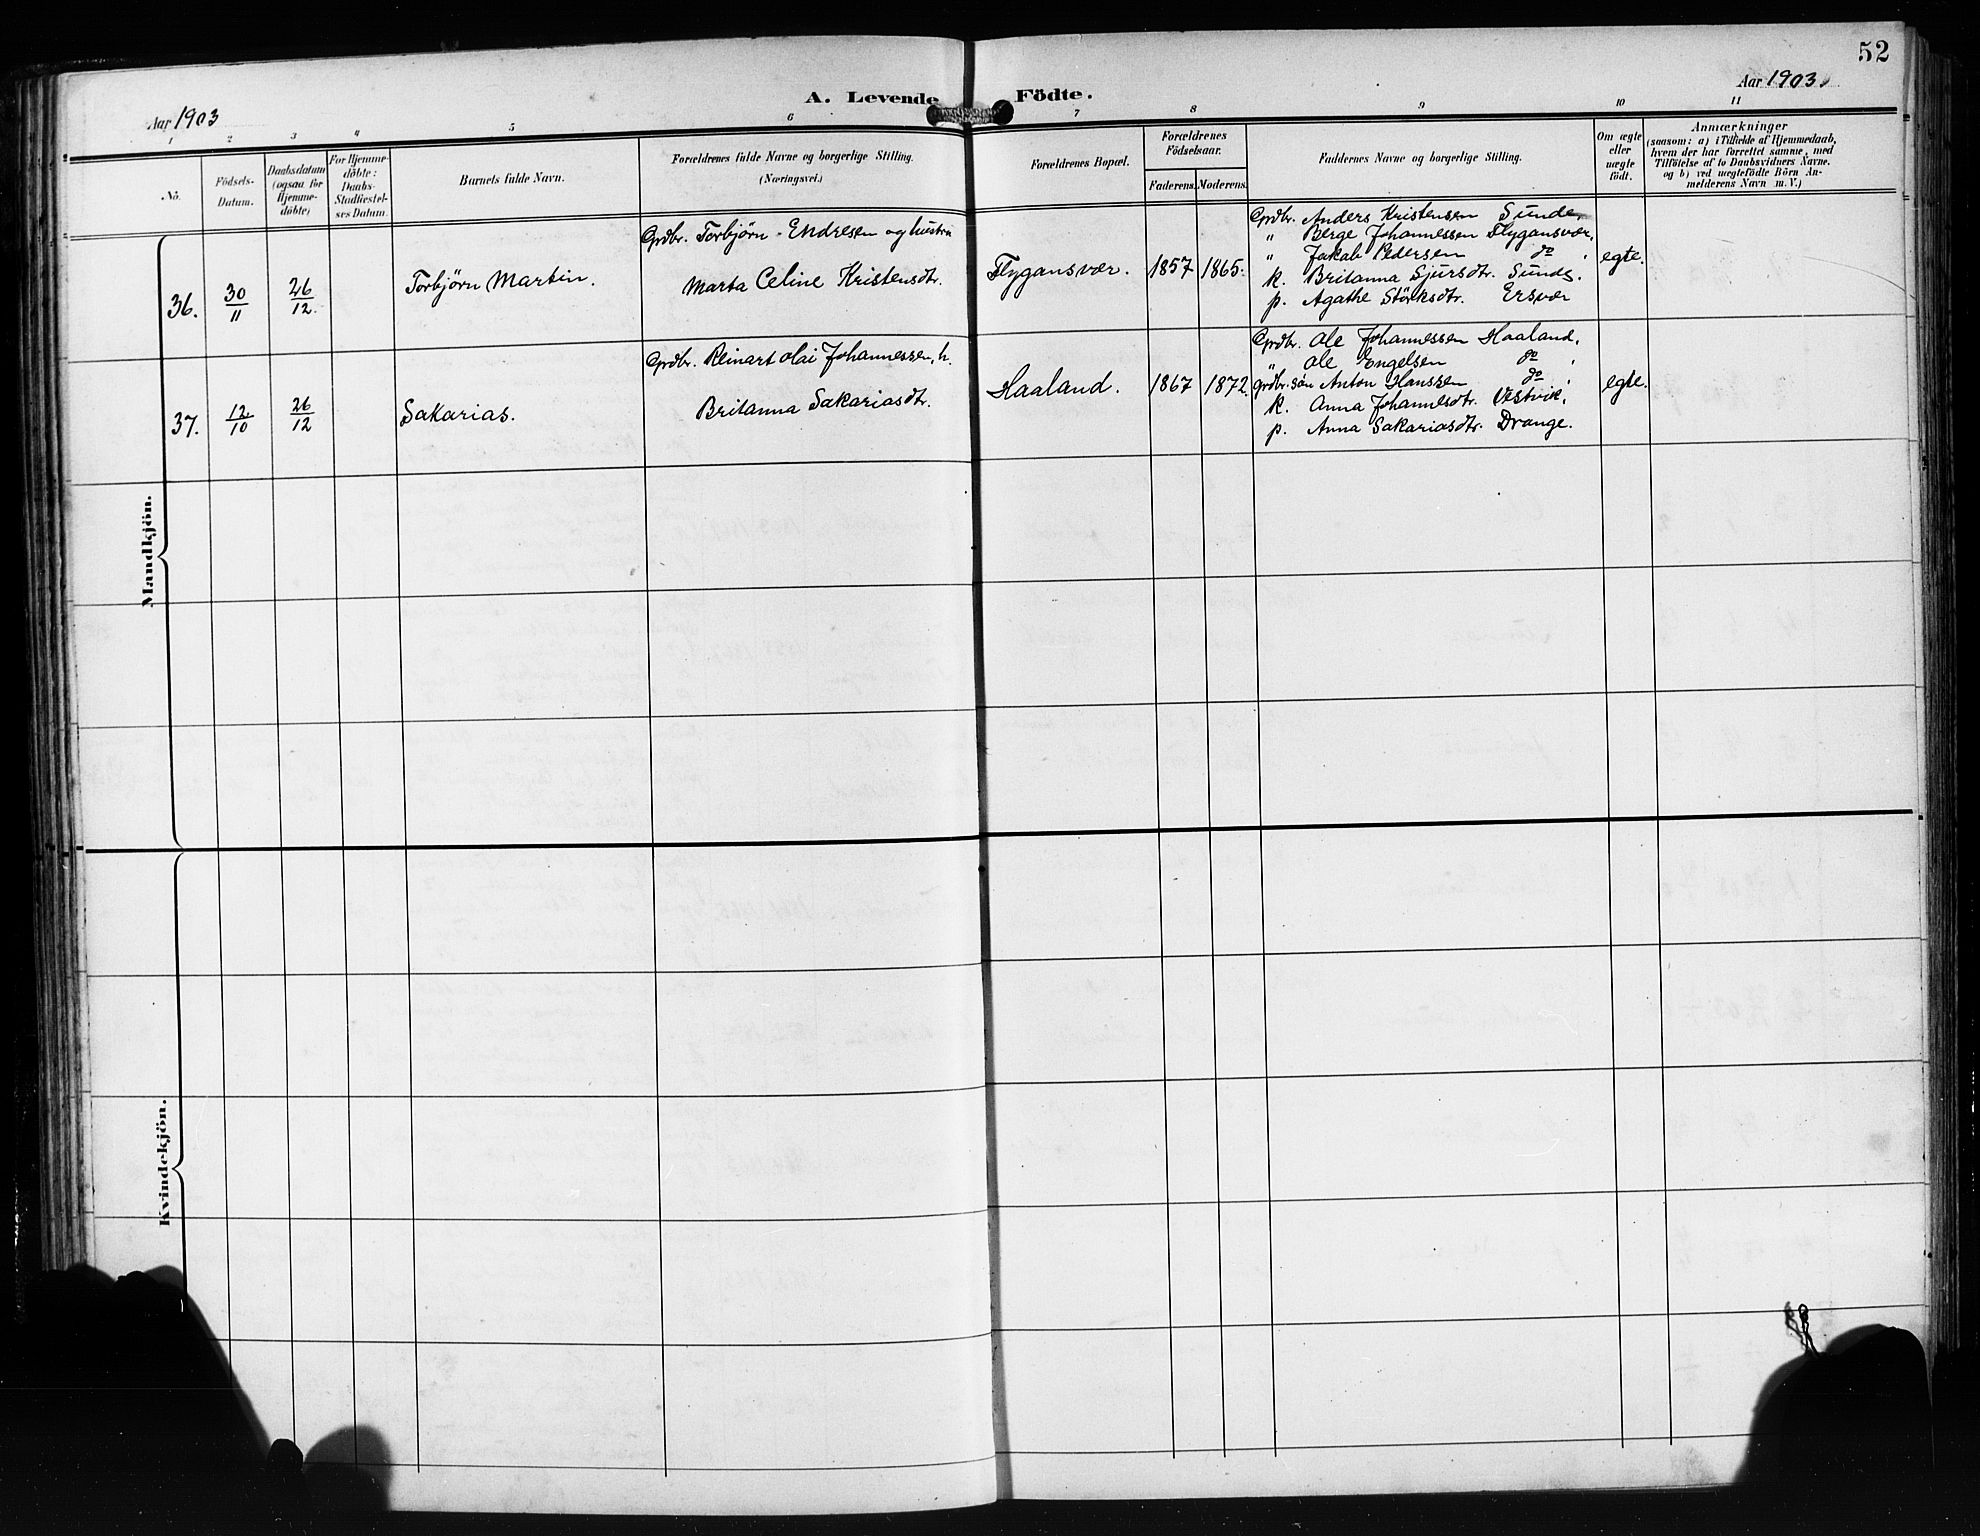 52
Aar 1903
A. Levende Födte.
Aar 1903.
1 2 3 4 5 6 7 8 9 10 11
No.
Födsels-Datum.
Daabsdatum (ogsaa for Hjemme-döbte)
For Hjemme-döbte: Daabs-Stadfæstel-ses Datum.
Barnets fulde Navn.
Forældrenes fulde Navne og borgerlige Stilling.
(Næringsvei.)
Forældrenes Bopæl.
Forældrenes Födselsaar.
Faderens. Moderens.
Faddernes Navne og borgerlige Stilling.
Om ægte eller uægte födt.
Anmærkninger
(saasom: a) i Tilfælde af Hjemmedaab,
hvem der har forrettet samme, med
Tilföielse af to Daabsvidners Navne.
og b) ved uægtefödte Börn An-
melderens Navn m. V.)
Mandkjön.
36. 30/11 26/12. Torbjørn Martin.
Grdbr. Torbjørn Endresen og hustru
Marta Celine Kristensdtr.
Flygansvær. 1857 1865.
Grdbr. Anders Kristensen Sunde,
" Berge Johannessen Flygansvær,
" Jakob Pedersen do,
k. Britanna Sjursdtr. Sunde,
p. Agathe Störksdtr. Ersvær
egte.
37. 12/10 26/12 Sakarias.
Grdbr. Reinart Olai Johannessen, h.
Britanna Sakariasdtr.
Haaland. 1867 1872.
Grdbr. Ole Johannessen Haaland,
" Ole Engelsen do,
grdbr. søn Anton Hanssen do,
k. Anna Johannesdtr. Vestvik,
p. Anna Sakariasdtr. Drange.
egte.
Kvindekjön.